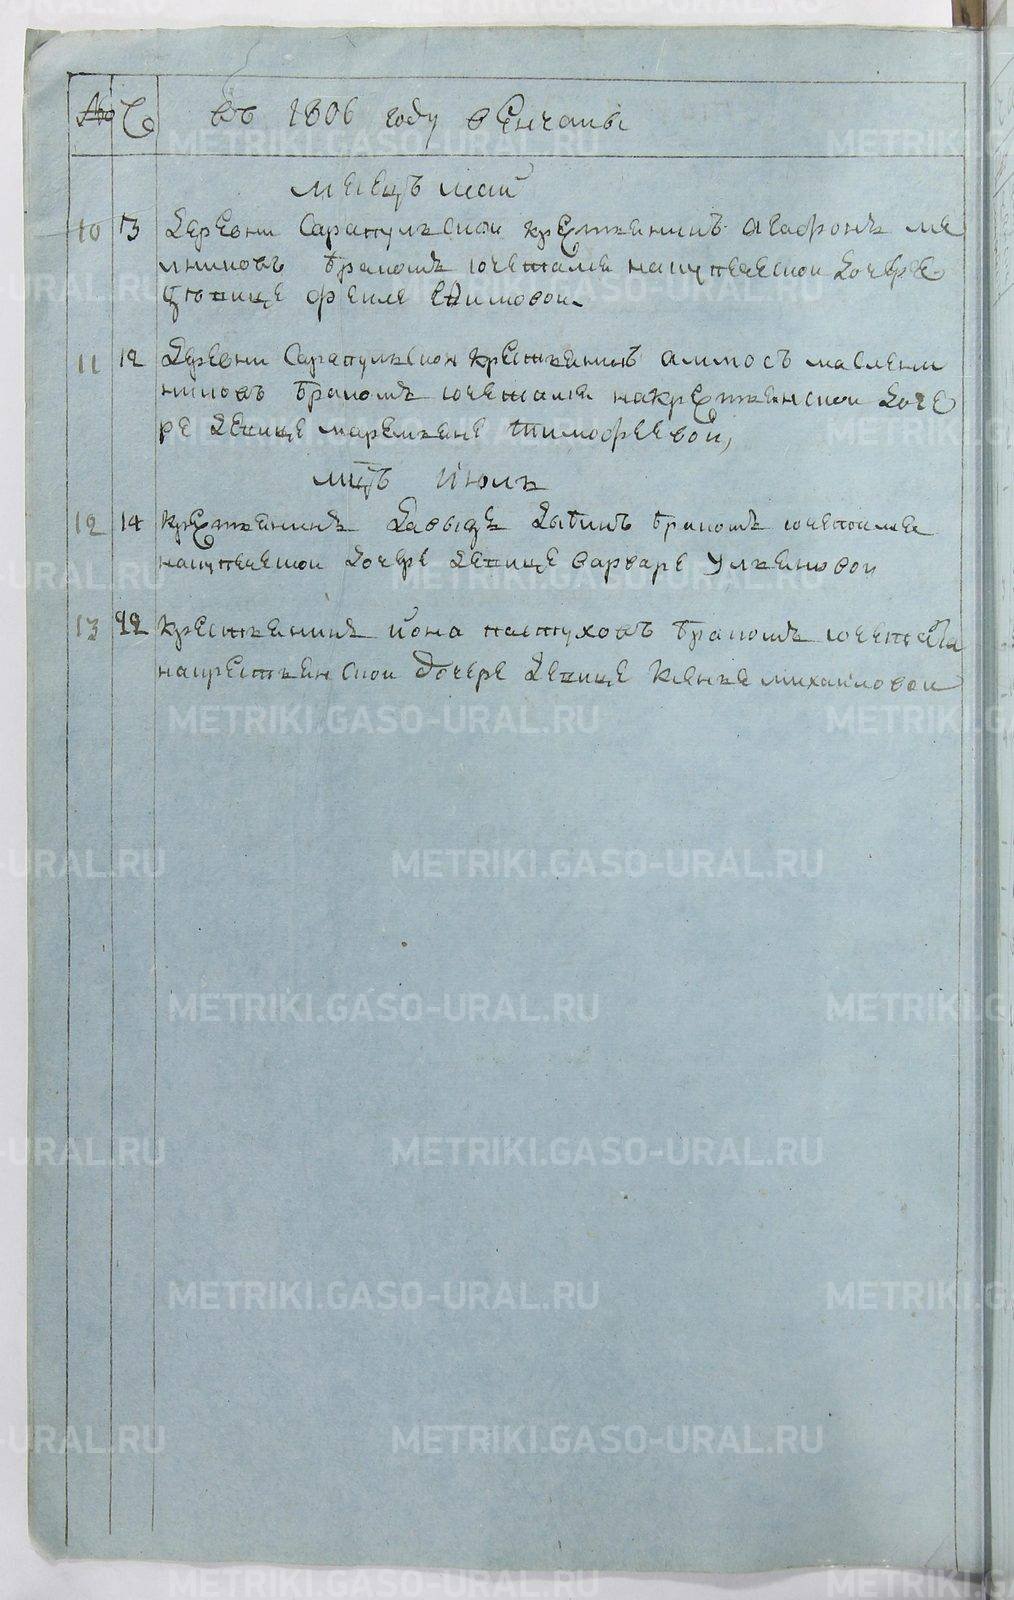 № Ч въ 1806 году венчаны
месецъ май
10 13 деревни Сарапульской крестьянинъ агафонъ ме
льниковъ бракомъ сочетался на купеческой дочере
девице феклѣ
11 12 деревни Сарапульской крестьянинъ аммосъ маслени
никовъ бракомъ сочетался на крестьянской доче
ре девице маремьяне тимофеевой,
мцъ июль
12 14 крестьянинъ давыдъ бракомъ сочетался
на купеческой дочере девице варваре
13 22 крестьянинъ иона пастуховъ бракомъ сочетался
на крестьянской дочере девице михаиловой
METRIKI.GASO-URAL.RU